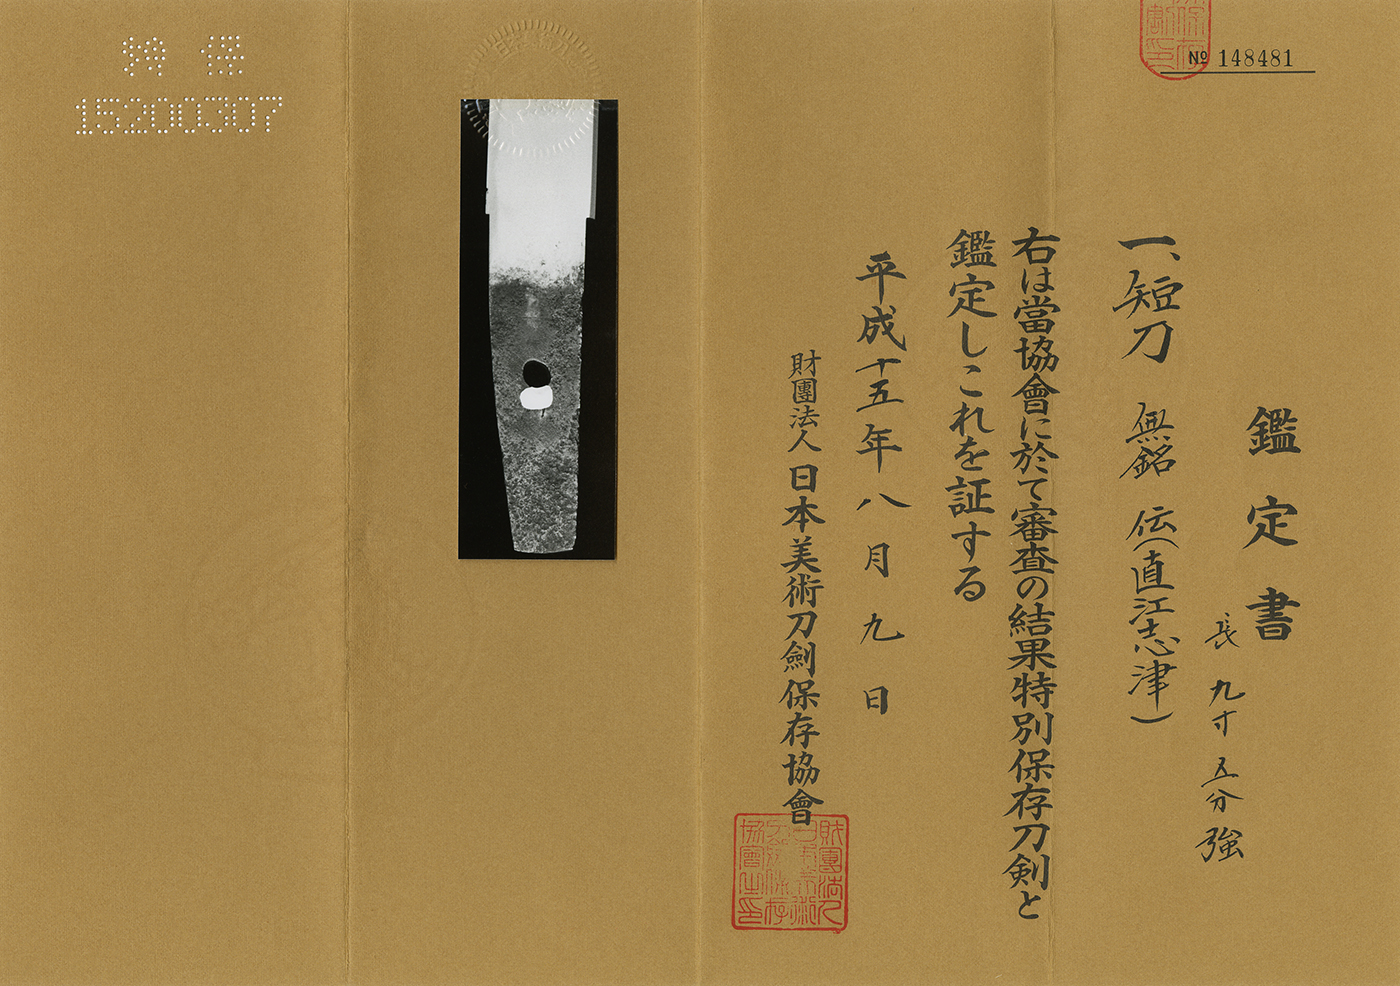 № 148481
鑑定書
長 九寸五分強
一、短刀 無銘 伝(直江志津)
右は當協會に於て審査の結果特別保存刀剣と
鑑定しこれを証する
平成十五年八月九日
財團法人日本美術刀劍保存協會
財團法人日本美術刀劍保存協會之印
特保
15200307